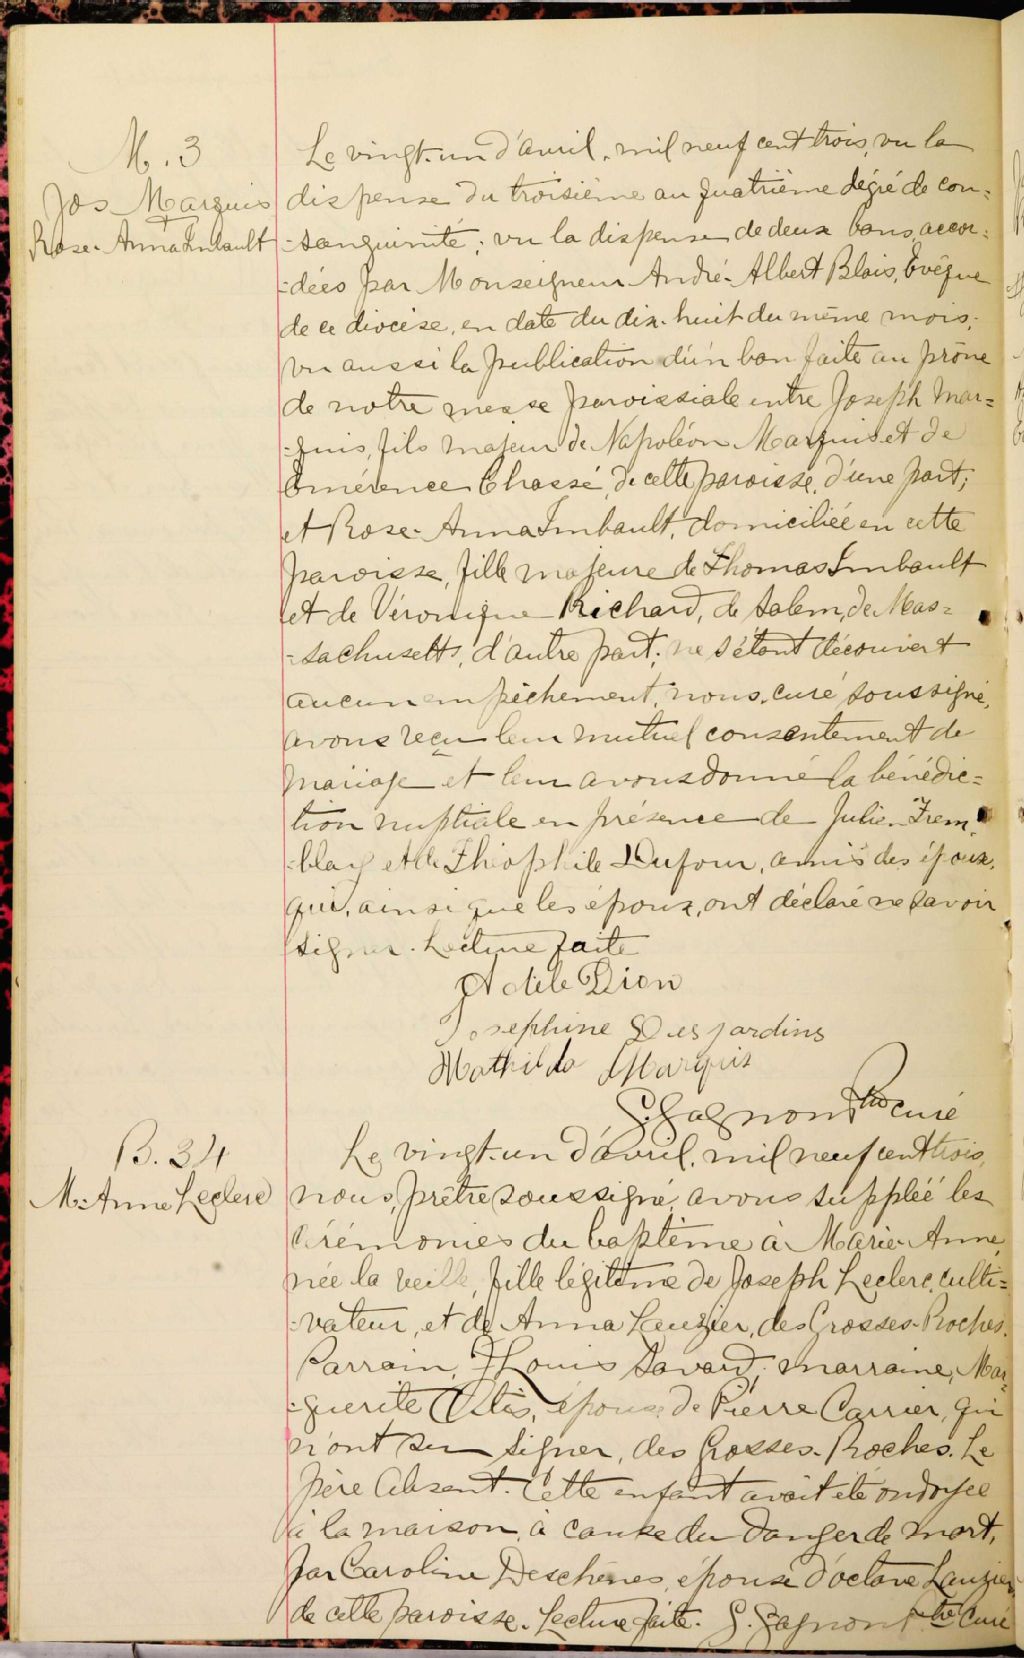 M. 3
Jos Marquis
&
Rose-Anna Imbault
Le vingt-un d'avril, mil neuf cent trois, vu la
dispense du troisième au quatrième dégré de con=
=sanguinité; vu la dispense de deux bans, accor=
=dées par Monseigneur André-Albert Blais, Évêque
de ce diocèse, en date du dix-huit du même mois;
vu aussi la publication d'un ban faite au prône
de notre messe paroissiale entre Joseph Mar=
=quis, fils majeur de Napoléon Marquis et de
Émérence Chassé, de cette paroisse, d'une part;
et Rose-Anna Imbault, domiciliée en cette
paroisse, fille majeure de Thomas Imbault
et de Véronique Richard, de Salem, de Mas=
=sachusetts, d'autre part; ne s'étant découvert
aucun empêchement, nous, curé soussigné,
avons reçu leur mutuel consentement de
mariage et leur avons donné la bénédic=
tion nuptiale en présence de Julie Trem=
=blay et de Théophile Dufour, amis des époux,
qui, ainsi que les époux, ont déclaré ne savoir
signer. Lecture faite
Adèle Dion
Josephine Desjardins
Mathilda Marquis
G. Gagnon Ptre curé
B. 34
M-Anne Leclerc
Le vingt-un d'avril, mil neuf cent trois,
nous, prêtre soussigné, avons suppléé les
cérémonies du baptême à Marie-Anne,
née la veille, fille légitime de Joseph Leclerc, culti=
=vateur, et de Anna Lauzier, des Grosses-Roches.
Parrain, Louis Savard; marraine, Mar=
=guerite Ostis, épouse de Pierre Carrier, qui
n'ont su signer, des Grosses-Roches. Le
père absent. Cette enfant avait été ondoyée
à la maison, à cause du danger de mort,
par Caroline Deschênes, épouse d'Octave Lauzier,
de cette paroisse. Lecture faite. G. Gagnon Ptre Curé